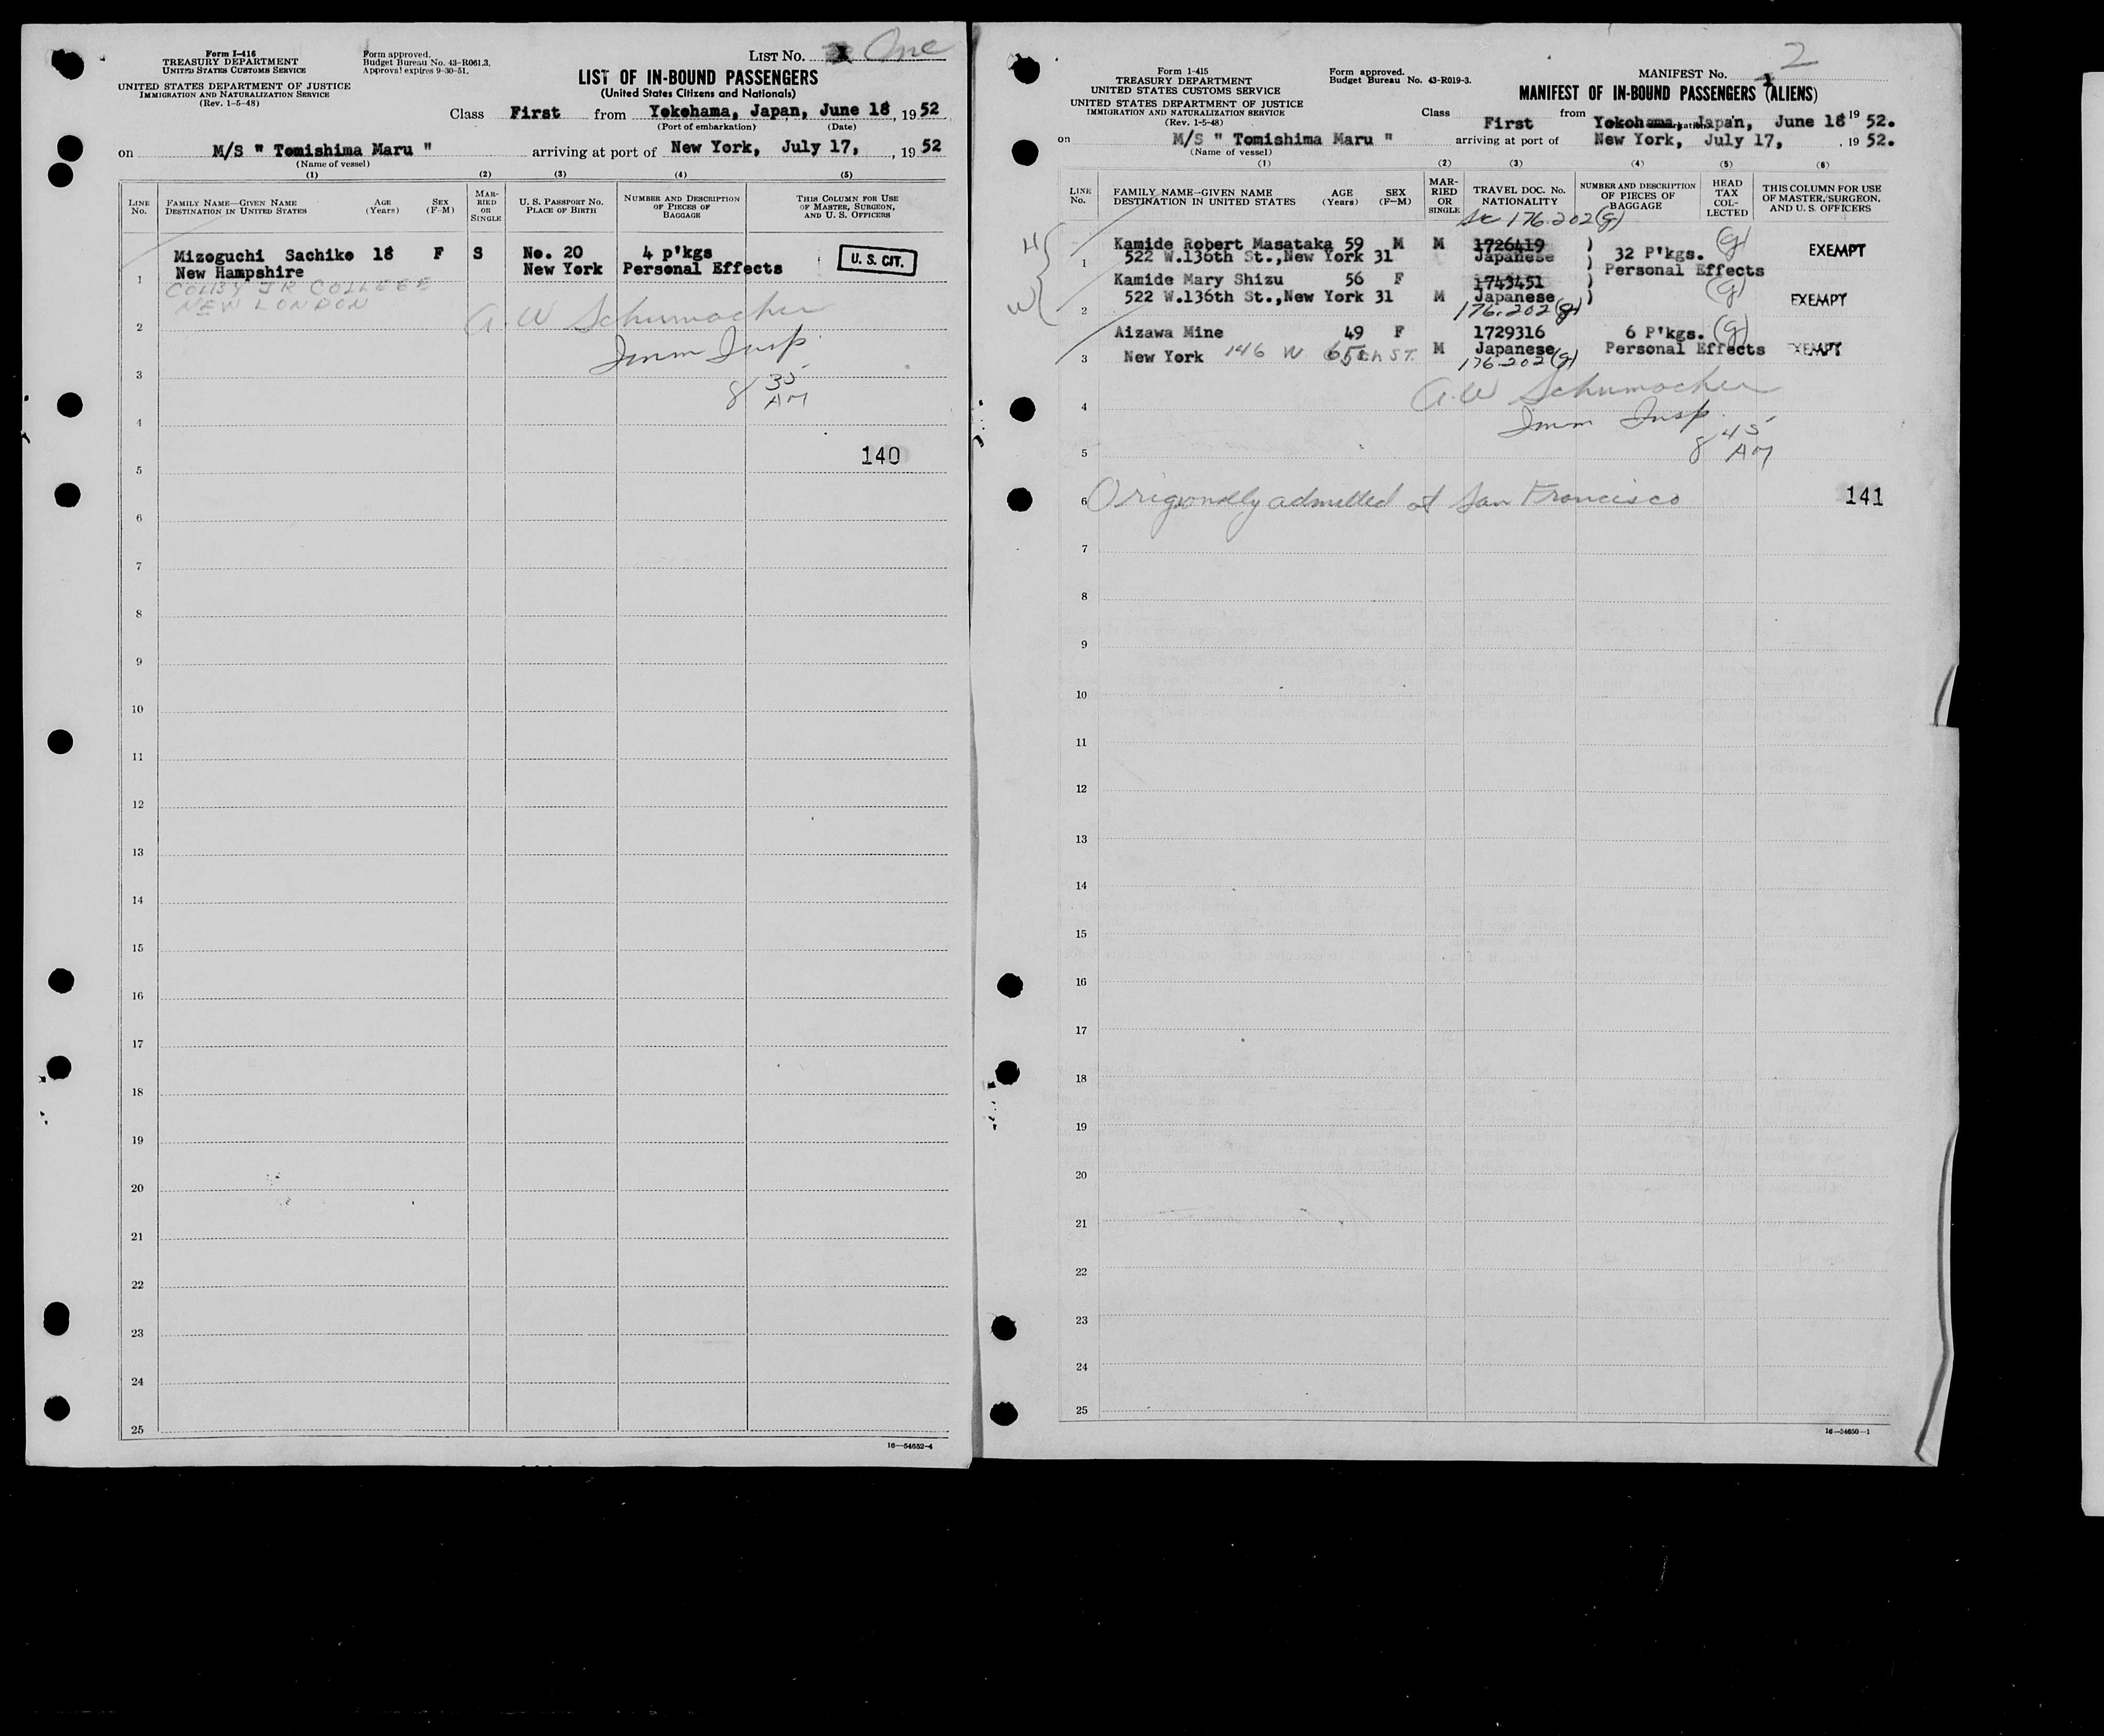 Form I-416
TREASURY DEPARTMENT
UNITED STATES CUSTOMS SERVICE
UNITED STATES DEPARTMENT OF JUSTICE
IMMIGRATION AND NATURALIZATION SERVICE
(Rev. 1-5-48)
Form approved.
Budget Bureau No. 43-R061.3.
Approval expires 9-30-51.
LIST No. One
LIST OF IN-BOUND PASSENGERS
(United States Citizens and Nationals)
Class First from Yokohama, Japan, June 18, 1952
(Port of embarkation) (Date)
on M/S " Tomishima Maru " arriving at port of New York, July 17, , 1952
(Name of vessel)
(1) (2) (3) (4) (5)
LINE No. FAMILY NAME—GIVEN NAME DESTINATION IN UNITED STATES AGE (Years) SEX (F-M) MARRIED OR SINGLE U. S. PASSPORT No. PLACE OF BIRTH NUMBER AND DESCRIPTION OF PIECES OF BAGGAGE THIS COLUMN FOR USE OF MASTER, SURGEON, AND U. S. OFFICERS
Mizoguchi Sachiko 18 F S No. 20 4 p'kgs U. S. CIT.
1 New Hampshire New York Personal Effects
COLBY JR COLLEGE
NEW LONDON
2 A. W Schumacher
Imm Insp.
3 8 35 AM
4
140
5
6
7
8
9
10
11
12
13
14
15
16
17
18
19
20
21
22
23
24
25
16—54652-4
Form I-415
TREASURY DEPARTMENT
UNITED STATES CUSTOMS SERVICE
UNITED STATES DEPARTMENT OF JUSTICE
IMMIGRATION AND NATURALIZATION SERVICE
(Rev. 1-5-48)
Form approved.
Budget Bureau No. 43-R019-3.
MANIFEST No. 2
MANIFEST OF IN-BOUND PASSENGERS (ALIENS)
Class First from Yokohama, Japan, June 18 1952.
on M/S " Tomishima Maru " arriving at port of New York, July 17, , 1952.
(Name of vessel)
(1) (2) (3) (4) (5) (6)
LINE No. FAMILY NAME—GIVEN NAME DESTINATION IN UNITED STATES AGE (Years) SEX (F-M) MARRIED OR SINGLE TRAVEL DOC. No. NATIONALITY NUMBER AND DESCRIPTION OF PIECES OF BAGGAGE HEAD TAX COLLECTED THIS COLUMN FOR USE OF MASTER, SURGEON, AND U. S. OFFICERS
176.202(g)
H Kamide Robert Masataka 59 M M 1726419 ) 32 P'kgs. (g) EXEMPT
1 522 W.136th St.,New York 31 Japanese ) Personal Effects
W Kamide Mary Shizu 56 F 1743451 (g) EXEMPT
2 522 W.136th St.,New York 31 M Japanese )
176.202(g)
Aizawa Mine 49 F 1729316 6 P'kgs. (g)
3 New York 146 W 65th ST. M Japanese Personal Effects EXEMPT
176-202(g)
4 A. W Schumacher
Imm Insp.
5 8 45 AM
6 Origionally admitted at San Francisco 141
7
8
9
10
11
12
13
14
15
16
17
18
19
20
21
22
23
24
25
16—54650-1